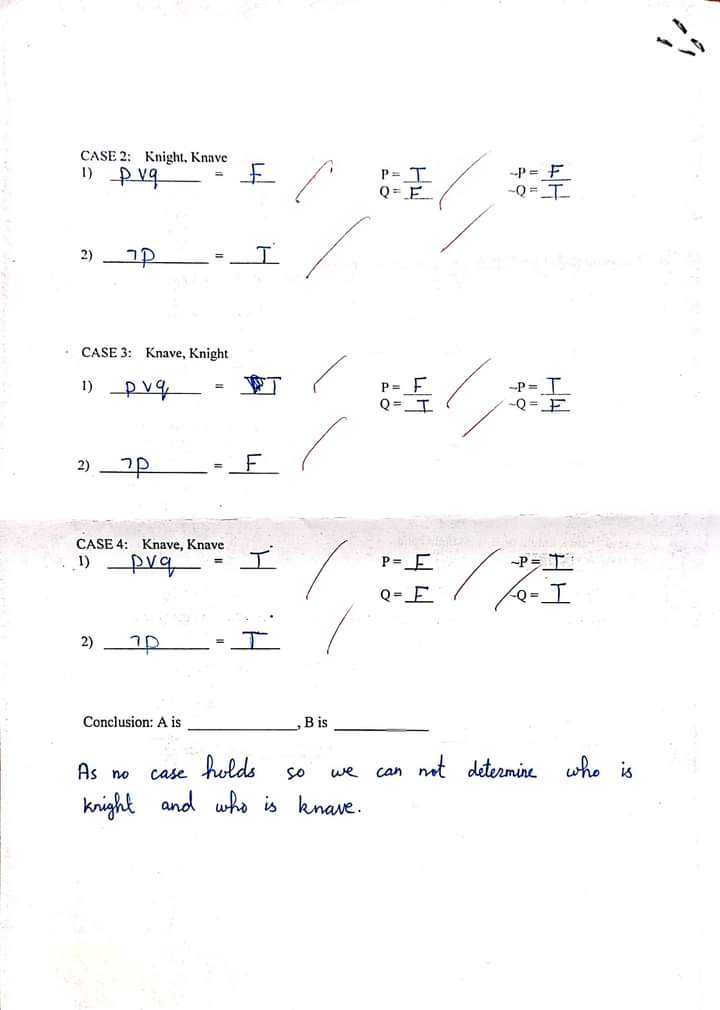 CASE 2: Knight, Knave
1) p v q = F P = T ~P = F
Q = F ~Q = T
2) ¬p = T
CASE 3: Knave, Knight
1) p v q = T P = F ~P = T
Q = T ~Q = F
2) ¬p = F
CASE 4: Knave, Knave
1) p v q = T P = F ~P = T
Q = F ~Q = T
2) ¬p = T
Conclusion: A is ____________, B is ____________
As no case holds so we can not determine who is
knight and who is knave.